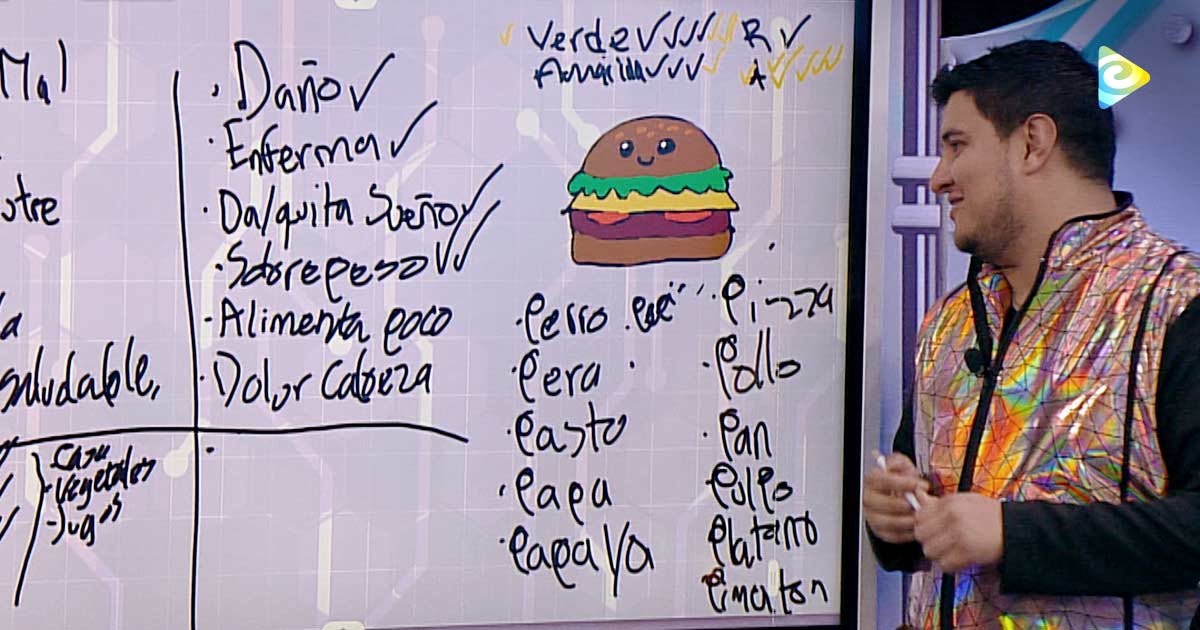 Mal
utre
a
saludable,
Casa
- Vegetales
- Jugos
· Daño ✓
· Enferma ✓
· Da/quita Sueño ✓
· Sobrepeso ✓✓
· Alimenta poco
· Dolor Cabeza
·
Verde ✓✓✓✓ R ✓
Amarilla ✓✓✓✓ A ✓✓✓✓
· Perro
· Pera
· Pasto
· Papa
· Papaya
· Pizza
· Pollo
· Pan
· Pulpo
Platano